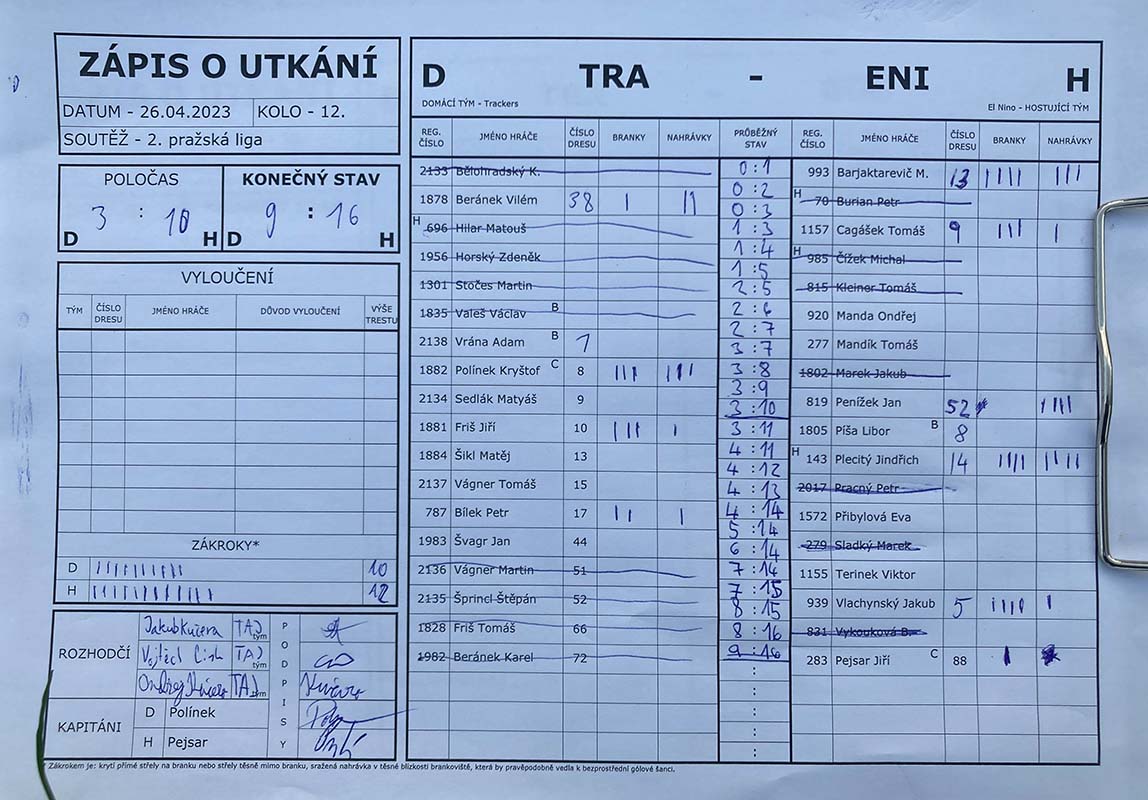 ZÁPIS O UTKÁNÍ
DATUM - 26.04.2023 KOLO - 12.
SOUTĚŽ - 2. pražská liga
POLOČAS KONEČNÝ STAV
3 : 10 9 : 16
D H D H
VYLOUČENÍ
TÝM ČÍSLO DRESU JMÉNO HRÁČE DŮVOD VYLOUČENÍ VÝŠE TRESTU
ZÁKROKY*
D IIIIIIIIII 10
H IIIIIIIIIIII 12
ROZHODČÍ
Jakub Kučera TAJ tým
Vojtěch TAJ tým
Ondřej Kučera TAJ tým
PODPISY
KAPITÁNI
D Polínek
H Pejsar
D TRA - ENI H
DOMÁCÍ TÝM - Trackers El Nino - HOSTUJÍCÍ TÝM
REG. ČÍSLO JMÉNO HRÁČE ČÍSLO DRESU BRANKY NAHRÁVKY PRŮBĚŽNÝ STAV REG. ČÍSLO JMÉNO HRÁČE ČÍSLO DRESU BRANKY NAHRÁVKY
2133 Bělohradský K.
1878 Beránek Vilém 38 I II
H 696 Hilar Matouš
1956 Horský Zdeněk
1301 Stočes Martin
1835 Valeš Václav B
2138 Vrána Adam B 1
1882 Polínek Kryštof C 8 III III
2134 Sedlák Matyáš 9
1881 Friš Jiří 10 III I
1884 Šikl Matěj 13
2137 Vágner Tomáš 15
787 Bílek Petr 17 II I
1983 Švagr Jan 44
2136 Vágner Martin 51
2135 Šprincl Štěpán 52
1828 Friš Tomáš 66
1982 Beránek Karel 72
0:1
0:2
0:3
1:3
1:4
1:5
2:5
2:6
2:7
3:7
3:8
3:9
3:10
3:11
4:11
4:12
4:13
4:14
5:14
6:14
7:14
7:15
8:15
8:16
9:16
:
:
:
993 Barjaktarevič M. 13 IIII III
H 70 Burian Petr
1157 Cagášek Tomáš 9 III I
H 985 Čížek Michal
815 Kleiner Tomáš
920 Manda Ondřej
277 Mandík Tomáš
1802 Marek Jakub
819 Penížek Jan 52 IIII
1805 Píša Libor B 8
H 143 Plecitý Jindřich 14 IIII IIII
2017 Pracný Petr
1572 Přibylová Eva
279 Sladký Marek
1155 Terinek Viktor
939 Vlachynský Jakub 5 IIII I
831 Vykouková B.
283 Pejsar Jiří C 88 I
* Zákrokem je: krytí přímé střely na branku nebo střely těsně mimo branku, sražená nahrávka v těsné blízkosti brankoviště, která by pravěpodobně vedla k bezprostřední gólové šanci.